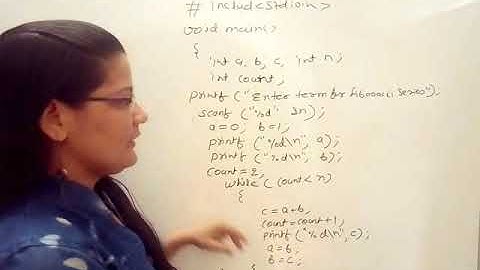 # include<stdio.h>
void main()
{
int a, b, c, int n;
int count;
printf ("Enter term for fibonacci series");
scanf ("%d" &n);
a=0; b=1;
printf ("%d\n", a);
printf ("%d\n", b);
count=2;
while (count<n)
{
c=a+b;
count=count+1;
printf ("%d\n", c);
a=b;
b=c;
}